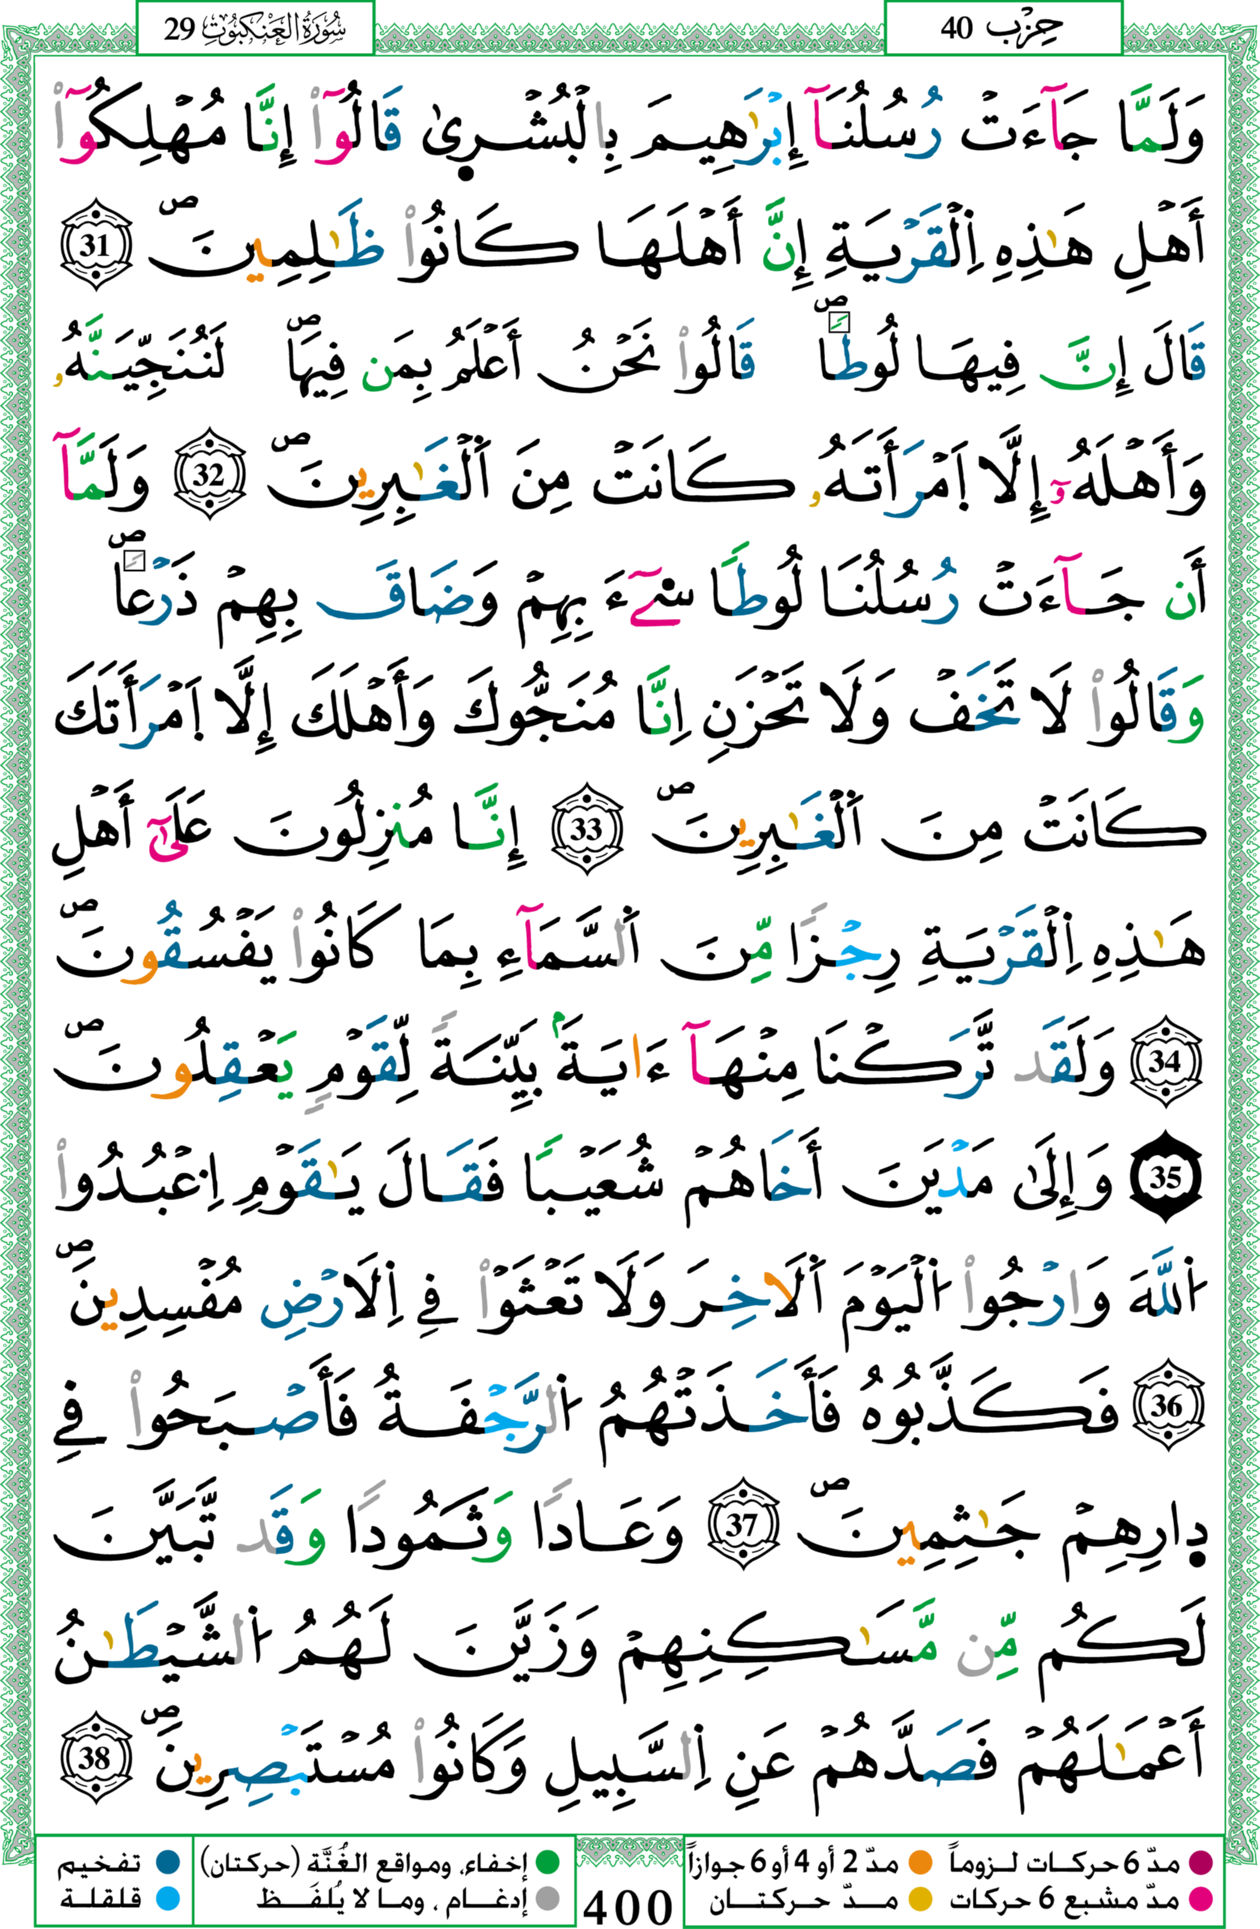 سُورَةُ الْعَنكَبُوتِ 29
حِزْب 40
وَلَمَّا جَآءَتْ رُسُلُنَآ إِبْرَٰهِيمَ بِالْبُشْرِىٰ قَالُوٓاْ إِنَّا مُهْلِكُوٓاْ
أَهْلِ هَٰذِهِ اِ۬لْقَرْيَةِ إِنَّ أَهْلَهَا كَانُواْ ظَٰلِمِينَۖ 31
قَالَ إِنَّ فِيهَا لُوطاٗۖ قَالُواْ نَحْنُ أَعْلَمُ بِمَن فِيهَاۖ لَنُنَجِّيَنَّهُۥ
وَأَهْلَهُۥٓ إِلَّا اَ۪مْرَأَتَهُۥ كَانَتْ مِنَ اَ۬لْغَٰبِرِينَۖ 32 وَلَمَّآ
أَن جَآءَتْ رُسُلُنَا لُوطاٗ سِےٓءَ بِهِمْ وَضَاقَ بِهِمْ ذَرْعاٗۖ
وَقَالُواْ لَا تَخَفْ وَلَا تَحْزَنِ اِنَّا مُنَجُّوكَ وَأَهْلَكَ إِلَّا اَ۪مْرَأَتَكَ
كَانَتْ مِنَ اَ۬لْغَٰبِرِينَۖ 33 إِنَّا مُنزِلُونَ عَلَىٰٓ أَهْلِ
هَٰذِهِ اِ۬لْقَرْيَةِ رِجْزاٗ مِّنَ اَ۬لسَّمَآءِ بِمَا كَانُواْ يَفْسُقُونَۖ
34 وَلَقَد تَّرَكْنَا مِنْهَآ ءَايَةَۢ بَيِّنَةٗ لِّقَوْمٖ يَعْقِلُونَۖ
35 وَإِلَىٰ مَدْيَنَ أَخَاهُمْ شُعَيْباٗ فَقَالَ يَٰقَوْمِ اِ۟عْبُدُواْ
اُ۬للَّهَ وَارْجُواْ اُ۬لْيَوْمَ اَ۬لَاخِرَ وَلَا تَعْثَوْاْ فِے اِ۬لَارْضِ مُفْسِدِينَۖ
36 فَكَذَّبُوهُ فَأَخَذَتْهُمُ اُ۬لرَّجْفَةُ فَأَصْبَحُواْ فِے
دِارِهِمْ جَٰثِمِينَۖ 37 وَعَاداٗ وَثَمُوداٗ وَقَد تَّبَيَّنَ
لَكُم مِّن مَّسَٰكِنِهِمْ وَزَيَّنَ لَهُمُ اُ۬لشَّيْطَٰنُ
أَعْمَٰلَهُمْ فَصَدَّهُمْ عَنِ اِ۬لسَّبِيلِ وَكَانُواْ مُسْتَبْصِرِينَۖ 38
مدّ 6 حركات لـزوماً
مدّ 2 أو 4 أو 6 جوازاً
مدّ مشبع 6 حركات
مـــدّ حـركتـــان
400
إخفاء، ومواقع الغُنَّة (حركتان)
إدغـام ، ومـا لا يُلفَـظ
تفخيم
قلقلة